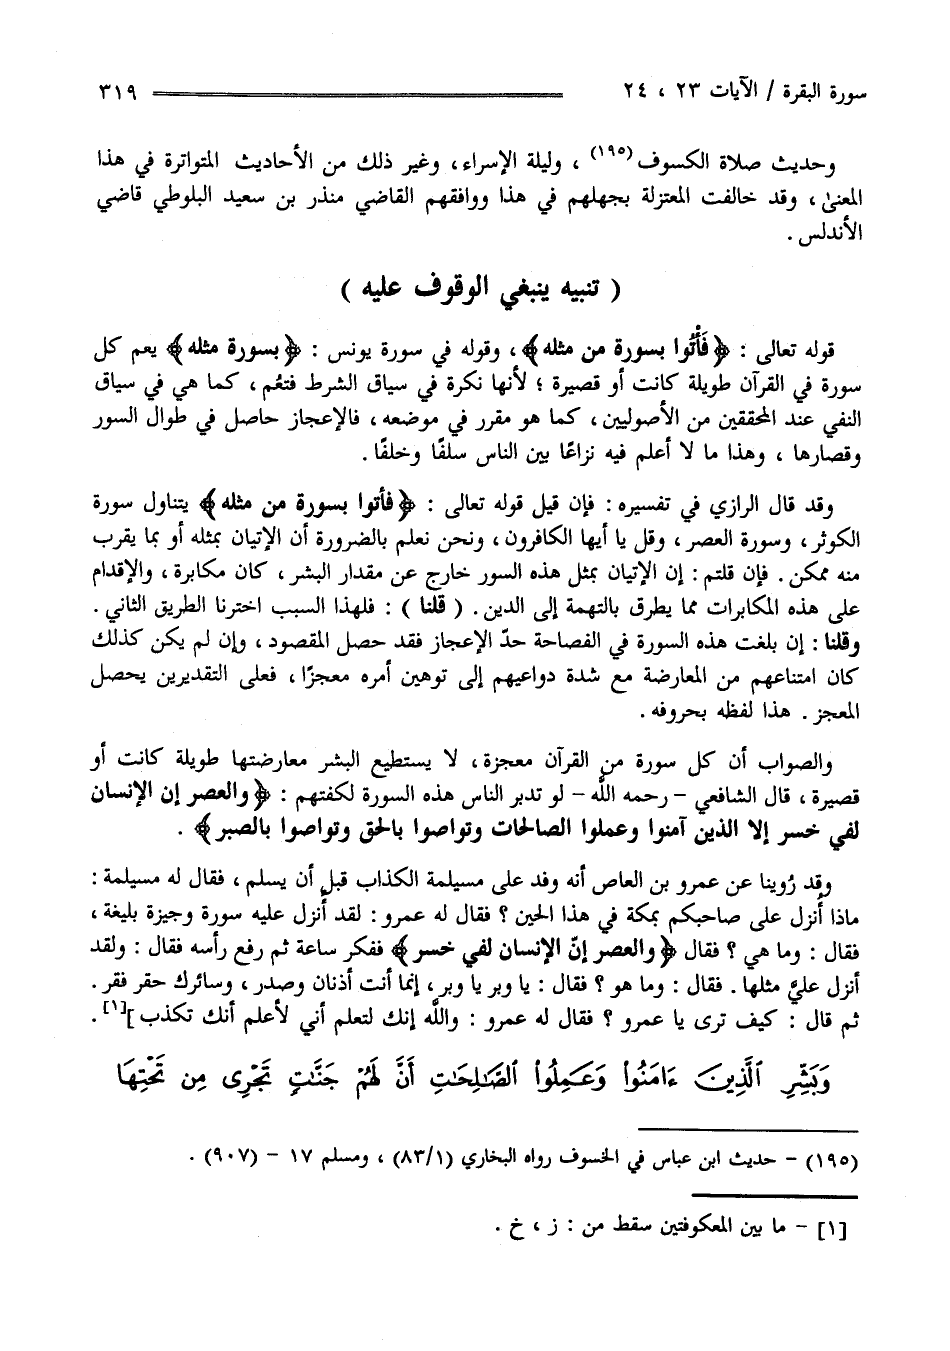 سورة البقرة / الآيات ٢٣ ، ٢٤ ٣١٩
وحديث صلاة الكسوف(١٩٥) ، وليلة الإسراء، وغير ذلك من الأحاديث المتواترة في هذا
المعنىٰ ، وقد خالفت المعتزلة بجهلهم في هذا ووافقهم القاضي منذر بن سعيد البلوطي قاضي
الأندلس .
( تنبيه ينبغي الوقوف عليه )
قوله تعالى : ﴿فَأْتُوا بسورة من مثله﴾ ، وقوله في سورة يونس : ﴿بسورة مثله﴾ يعم كل
سورة في القرآن طويلة كانت أو قصيرة ؛ لأنها نكرة في سياق الشرط فتعُم ، كما هي في سياق
النفي عند المحققين من الأصوليين ، كما هو مقرر في موضعه ، فالإعجاز حاصل في طوال السور
وقصارها ، وهذا ما لا أعلم فيه نزاعًا بين الناس سلفًا وخلفًا .
وقد قال الرازي في تفسيره : فإن قيل قوله تعالى : ﴿فأتوا بسورة من مثله﴾ يتناول سورة
الكوثر ، وسورة العصر ، وقل يا أيها الكافرون ، ونحن نعلم بالضرورة أن الإتيان بمثله أو بما يقرب
منه ممكن . فإن قلتم : إن الإتيان بمثل هذه السور خارج عن مقدار البشر ، كان مكابرة ، والإقدام
على هذه المكابرات مما يطرق بالتهمة إلى الدين . ( قلنا ) : فلهذا السبب اخترنا الطريق الثاني .
وقلنا : إن بلغت هذه السورة في الفصاحة حدّ الإعجاز فقد حصل المقصود ، وإن لم يكن كذلك
كان امتناعهم من المعارضة مع شدة دواعيهم إلى توهين أمره معجزًا ، فعلى التقديرين يحصل
المعجز . هذا لفظه بحروفه .
والصواب أن كل سورة من القرآن معجزة ، لا يستطيع البشر معارضتها طويلة كانت أو
قصيرة ، قال الشافعي - رحمه الله - لو تدبر الناس هذه السورة لكفتهم : ﴿والعصر إن الإنسان
لفي خسر إلا الذين آمنوا وعملوا الصالحات وتواصوا بالحق وتواصوا بالصبر﴾ .
وقد رُوينا عن عمرو بن العاص أنه وفد على مسيلمة الكذاب قبل أن يسلم ، فقال له مسيلمة :
ماذا أُنزل على صاحبكم بمكة في هذا الحين ؟ فقال له عمرو : لقد أُنزل عليه سورة وجيزة بليغة ،
فقال : وما هي ؟ فقال ﴿والعصر إنّ الإنسان لفي خسر﴾ ففكر ساعة ثم رفع رأسه فقال : ولقد
أنزل عليّ مثلها . فقال : وما هو ؟ فقال : يا وبر يا وبر ، إنما أنت أذنان وصدر ، وسائرك حقر فقر .
ثم قال : كيف ترى يا عمرو ؟ فقال له عمرو : والله إنك لتعلم أني لأعلم أنك تكذب ][١] .
وَبَشِّرِ ٱلَّذِينَ ءَامَنُوا۟ وَعَمِلُوا۟ ٱلصَّـٰلِحَـٰتِ أَنَّ لَهُمْ جَنَّـٰتٍ تَجْرِى مِن تَحْتِهَا
(١٩٥) - حديث ابن عباس في الخسوف رواه البخاري (٨٣/١) ، ومسلم ١٧ - (٩٠٧) .
[١] - ما بين المعكوفتين سقط من : ز ، خ .